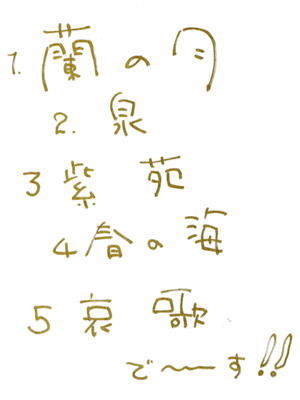 1. 蘭の月
2. 泉
3 紫 苑
4 春の海
5 哀 歌
で〜す!!